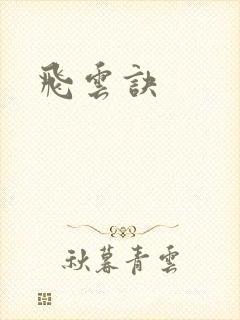 飛雲訣
秋暮青雲